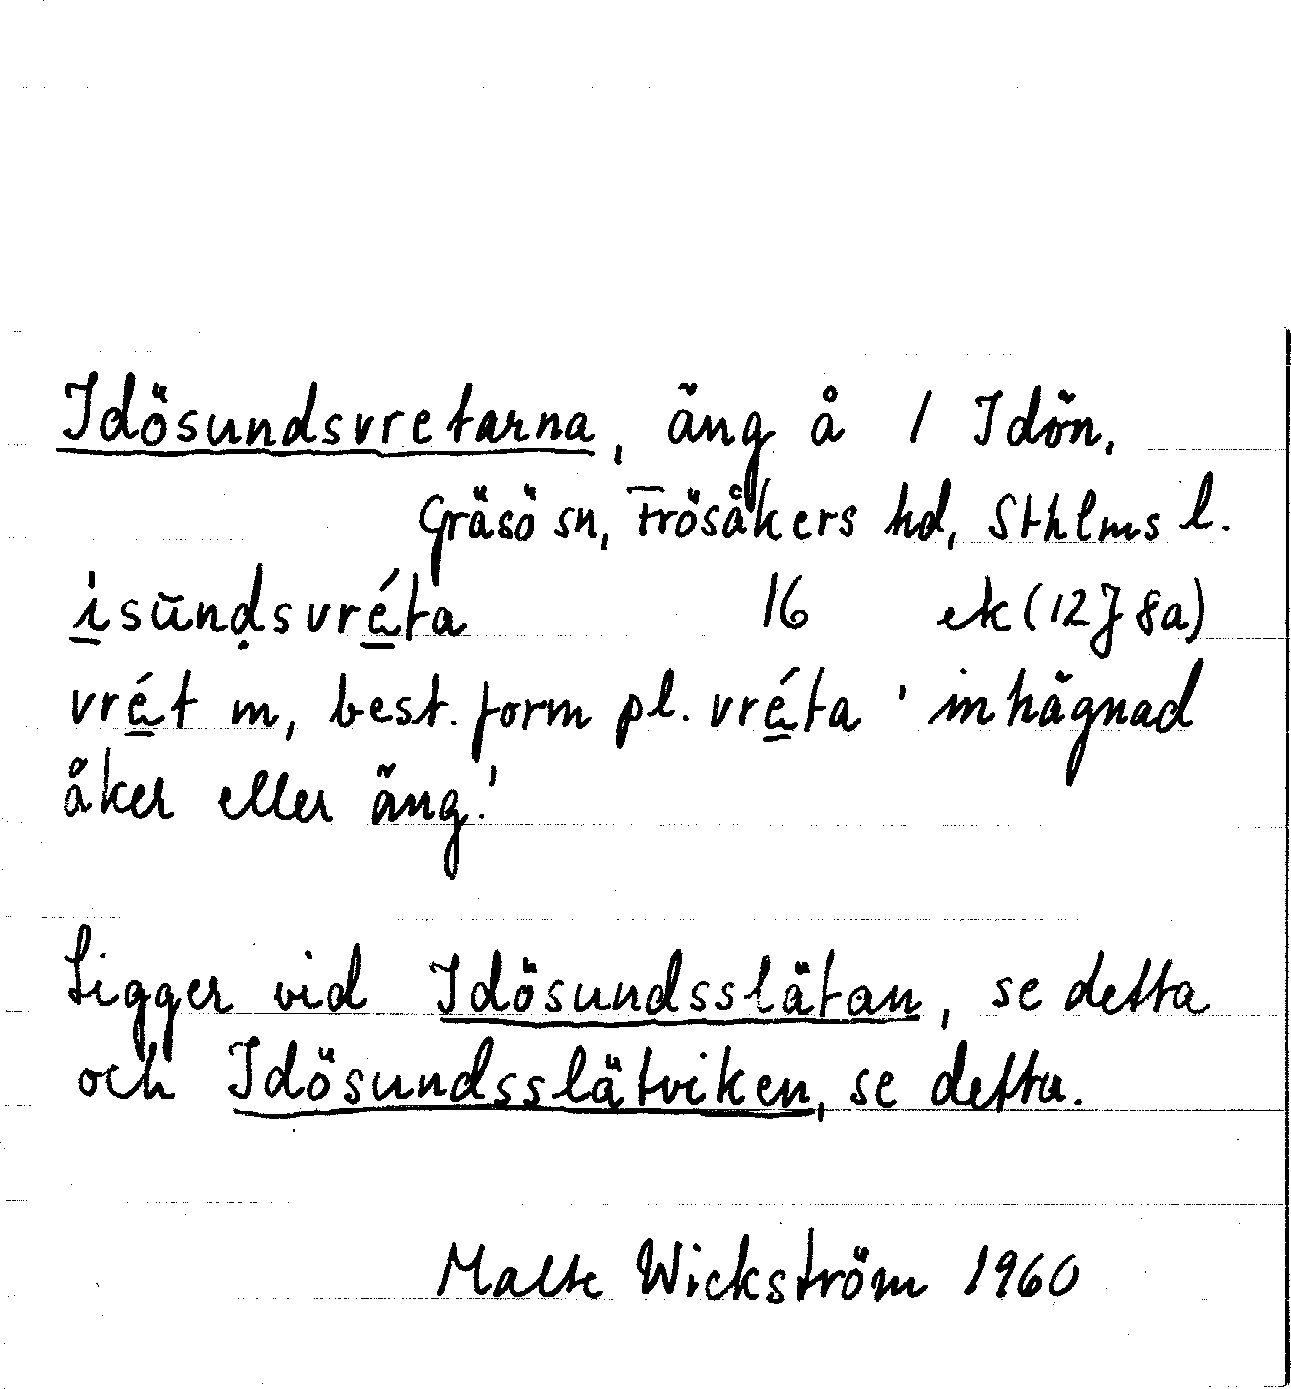 Idösundsvretarna, äng å 1 Idön,
Gräsö sn, Frösåkers hd, Sthlms l.
i̲sŭnḍsvré̲ta 16 ek (12J 8a)
vré̲t m, best. form pl. vré̲ta 'inhägnad
åker eller äng.'
Ligger vid Idösundsslätan, se detta
och Idösundsslätviken, se detta.
Malte Wickström 1960